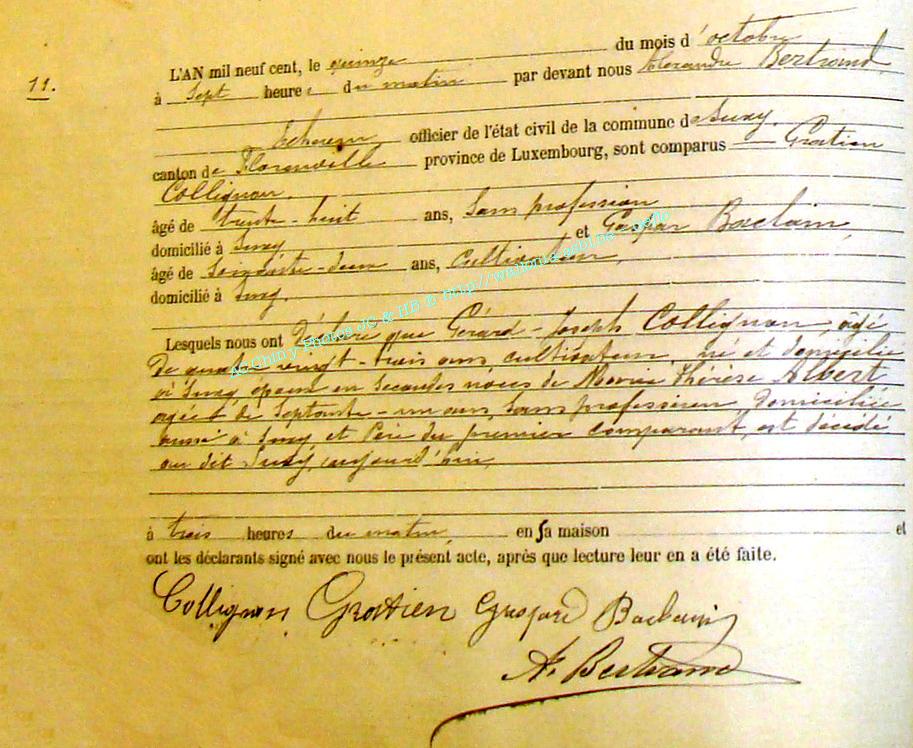 11.
L'AN mil neuf cent, le quinze du mois d'octobre
à sept heures du matin par devant nous Alexandre Bertrand,
Echevin officier de l'état civil de la commune de Suxy,
canton de Florenville province de Luxembourg, sont comparus Gratien
Collignon,
âgé de trente-huit ans, sans profession
domicilié à Suxy et Gaspar Baclain,
âgé de soixante-deux ans, cultivateur,
domicilié à Suxy.
Lesquels nous ont déclaré que Gérard-Joseph Collignon, âgé
de quatre vingt-trois ans, cultivateur, né et domicilié
à Suxy, époux en secondes noces de Marie Thérèse Albert
agée de septante-un ans, sans profession domiciliée
aussi à Suxy et Père du premier comparant, est décédé
au dit Suxy, aujourd'hui,
à trois heures du matin, en sa maison et
ont les déclarants signé avec nous le présent acte, après que lecture leur en a été faite.
Collignon Gratien Gaspard Baclain
A. Bertrand